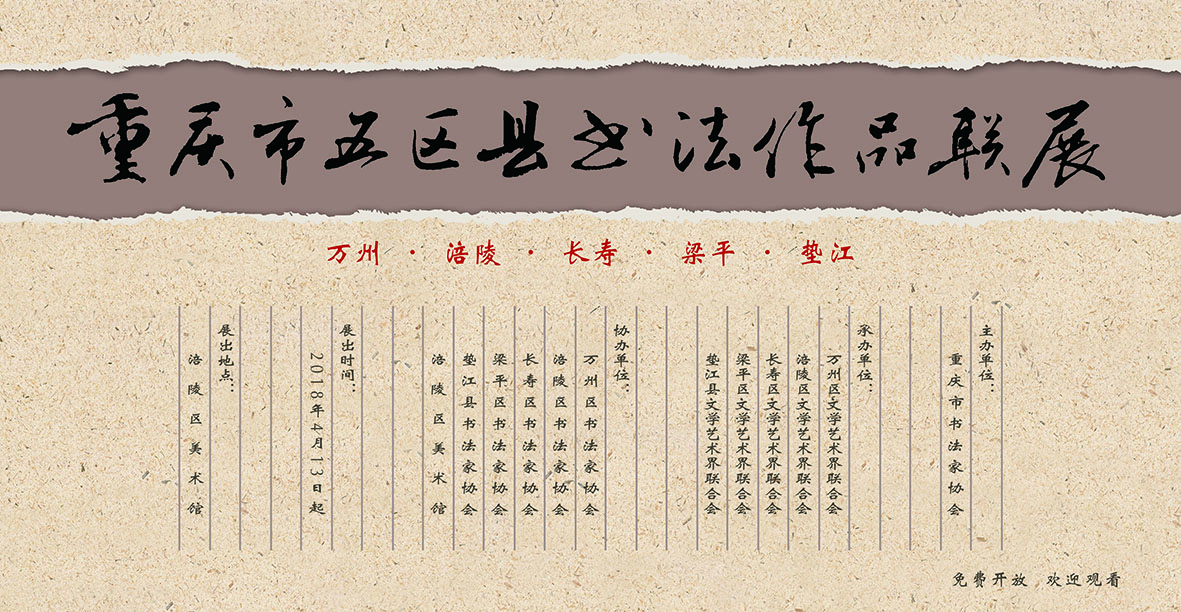 重庆市五区县书法作品联展
万州 · 涪陵 · 长寿 · 梁平 · 垫江
主办单位：
重庆市书法家协会
承办单位：
万州区文学艺术界联合会
涪陵区文学艺术界联合会
长寿区文学艺术界联合会
梁平区文学艺术界联合会
垫江县文学艺术界联合会
协办单位：
万州区书法家协会
涪陵区书法家协会
长寿区书法家协会
梁平区书法家协会
垫江县书法家协会
涪陵区美术馆
展出时间：
2018年4月13日起
展出地点：
涪陵区美术馆
免费开放 欢迎观看